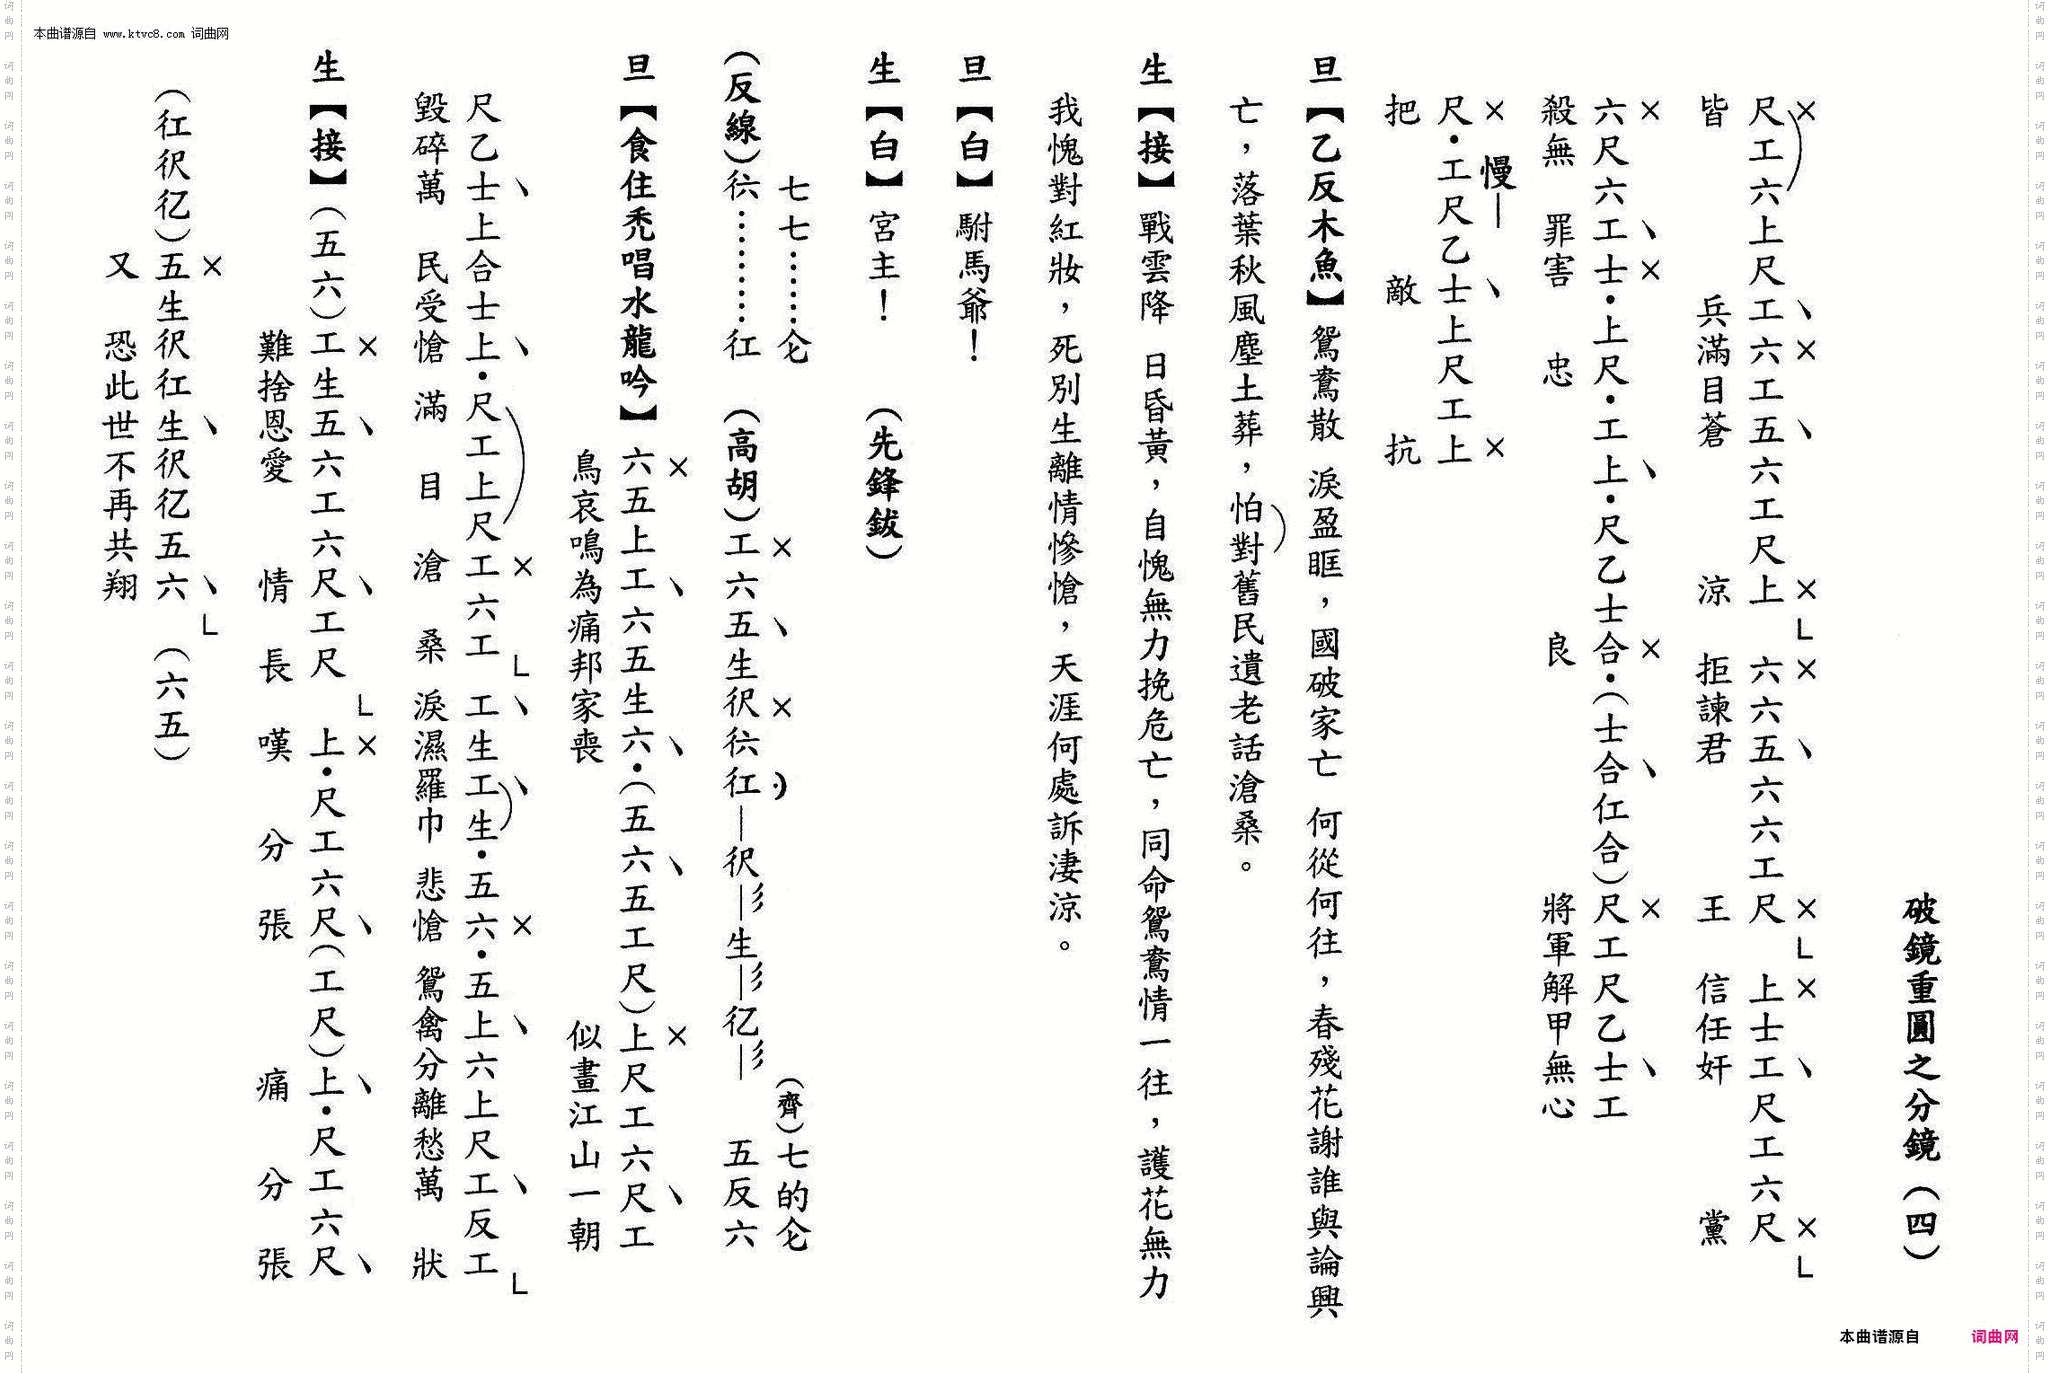 本曲谱源自 www.ktvc8.com 词曲网
破鏡重圓之分鏡(四)
× 、 × 、 × L × 、 × L × 、 × L
尺工六上尺工六工五六工尺上 六六五六六工尺 上士工尺工六尺
皆 兵滿目蒼 涼 拒諫君 王 信任奸 黨
× 、 × 、 × 、 × 、
六尺六工士•上尺•工上•尺乙士合•(士合仁合)尺工尺乙士工
殺無 罪害 忠 良 將軍解甲無心
× 慢— 、 ×
尺•工尺乙士上尺工上
把 敵 抗
旦【乙反木魚】鴛鴦散 淚盈眶，國破家亡 何從何往，春殘花謝誰與論興
亡，落葉秋風塵土葬，怕對舊民遺老話滄桑。
生【接】戰雲降 日昏黃，自愧無力挽危亡，同命鴛鴦情一往，護花無力
我愧對紅妝，死別生離情慘愴，天涯何處訴淒涼。
旦【白】駙馬爺！
生【白】宮主！ (先鋒鈸)
七七……仑 × 、 × (齊)七的仑
(反線)𠆩…………仜 (高胡)工六五生伬𠆩仜—伬—彡生—彡亿—彡 五反六
× 、 、 、 × 、
旦【食住禿唱水龍吟】六五上工六五生六•(五六五工尺)上尺工六尺工
鳥哀鳴為痛邦家喪 似畫江山一朝
、 、 × L 、 、 × 、 、 L
尺乙士上合士上•尺工上尺工六工 工生工生•五六•五上六上尺工反工
毀碎萬 民受愴 滿 目 滄 桑 淚濕羅巾 悲愴 鴛禽分離愁萬 狀
× 、 、 L × 、 、 、
生【接】(五六)工生五六工六尺工尺 上•尺工六尺(工尺)上•尺工六尺
難捨恩愛 情 長 嘆 分 張 痛 分 張
× 、 、 L
(仜伬亿)五生伬仜生伬亿五六 (六五)
又 恐此世不再共翔
本曲谱源自 词曲网